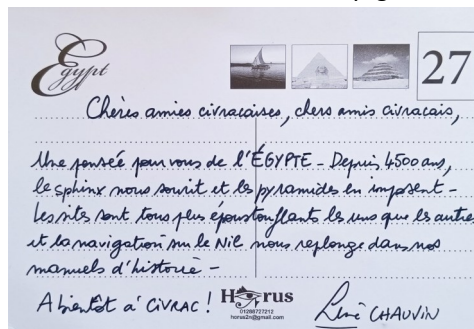 Egypt
27
Chères amies civracaises, chers amis civracais,
Une pensée pour vous de l'ÉGYPTE - Depuis 4500 ans,
le sphinx nous sourit et les pyramides en imposent -
Les sites sont tous plus époustouflants les uns que les autres
et la navigation sur le Nil nous replonge dans nos
manuels d'histoire -
A bientôt à CIVRAC !
Horus
01288727212
horus2n@gmail.com
René CHAUVIN